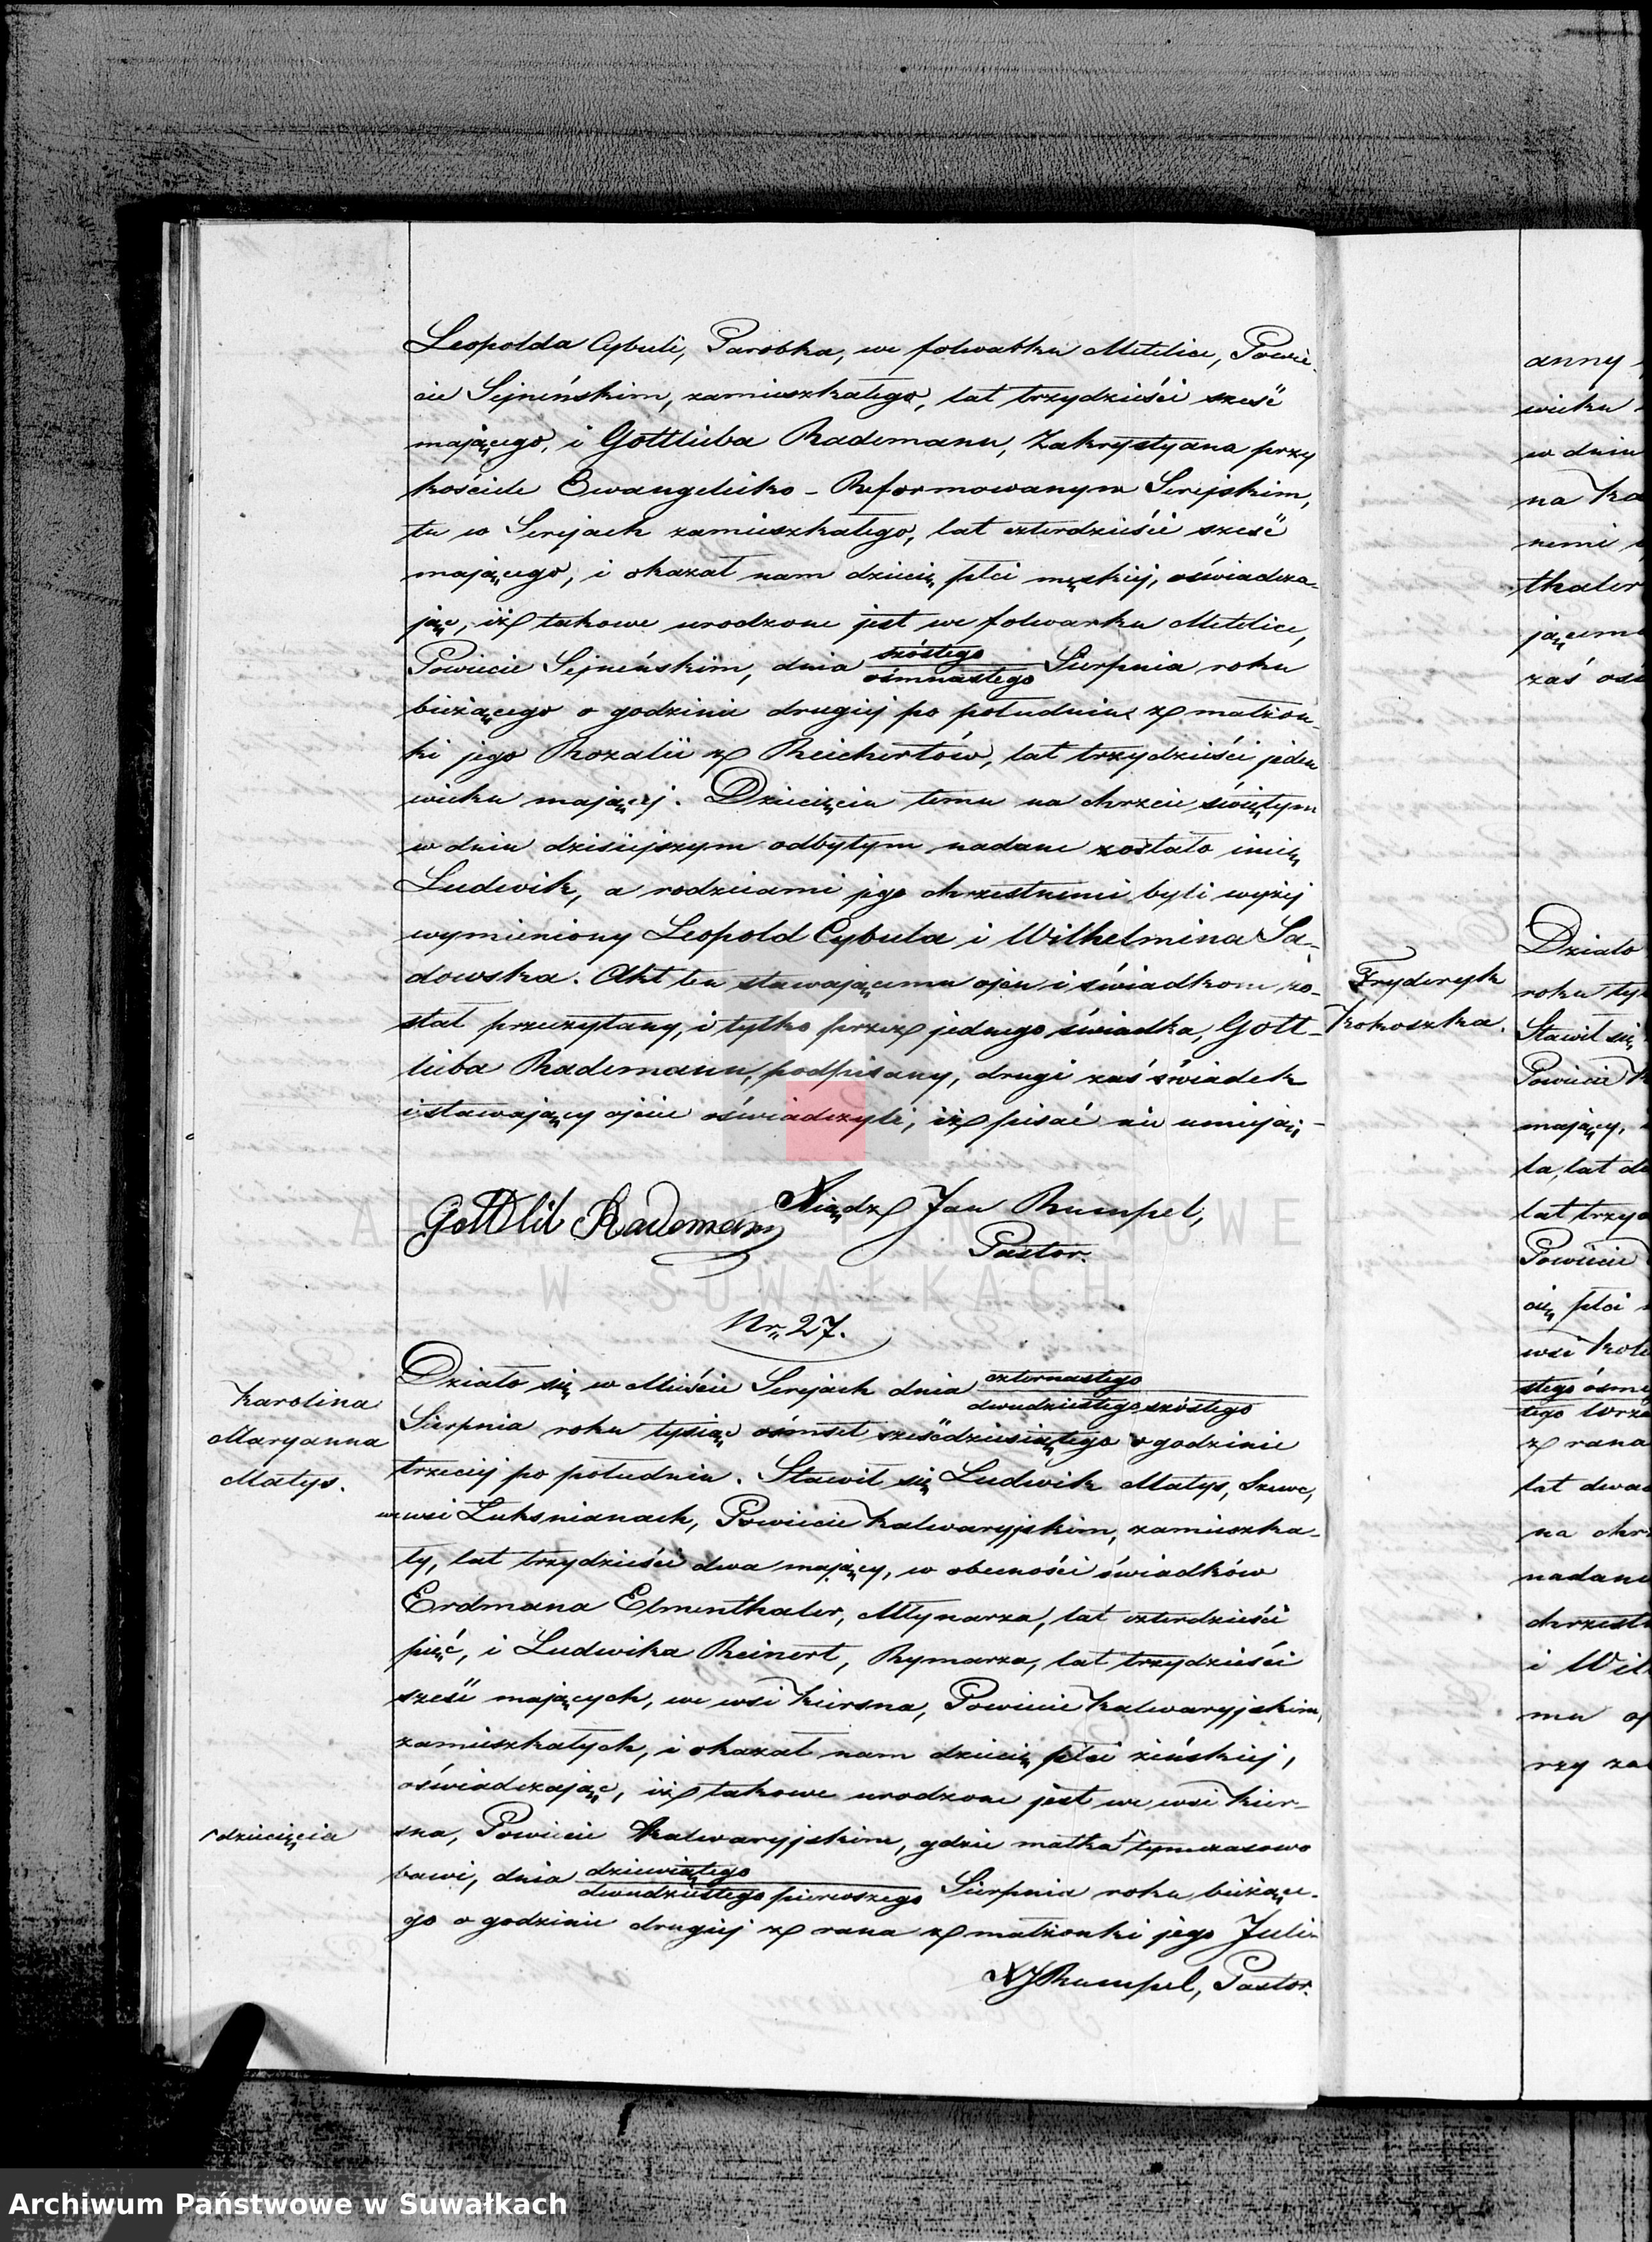 Leopolda Cybuli, Parobka, we folwarku Metelice, Powie-
cie Sejneńskim, zamieszkałego, lat trzydzieści sześć
mającego, i Gottlieba Rademann, Zakrystyana przy
kościele Ewangelicko-Reformowanym Serejskim,
tu w Serejach zamieszkałego, lat czterdzieści sześć
mającego, i okazał nam dziecię płci męskiej, oświadcza-
jąc, iż takowe urodzone jest we folwarku Metelice,
Powiecie Sejneńskim, dnia szóstego
ośmnastego Sierpnia roku
bieżącego o godzinie drugiej po południu z małżon-
ki jego Rozalii z Reichertów, lat trzydzieści jeden
wieku mającej. Dziecięciu temu na chrzcie świętym
w dniu dzisiejszym odbytym nadane zostało imię
Ludwik, a rodzicami jego chrzestnemi byli wyżej
wymieniony Leopold Cybula i Wilhelmina Sa-
dowska. Akt ten stawającemu ojcu i świadkom zo-
stał przeczytany, i tylko przez jednego świadka, Gott-
lieba Rademann, podpisany, drugi zaś świadek
i stawający ojciec oświadczyli, iż pisać nie umieją.
Gottlib Rademann
Xiądz Jan Rumpel,
Pastor.
Nr. 27.
Karolina
Maryanna
Matys.
Działo się w Mieście Serejach dnia czternastego
dwudziestego szóstego
Sierpnia roku tysiąc ośmset sześćdziesiątego o godzinie
trzeciej po południu. Stawił się Ludwik Matys, Szewc,
we wsi Luksnianach, Powiecie Kalwaryjskim, zamieszka-
ły, lat trzydzieści dwa mający, w obecności świadków
Erdmana Elmenthaler, Młynarza, lat czterdzieści
pięć, i Ludwika Reinert, Rymarza, lat trzydzieści
sześć mających, we wsi Kirsna, Powiecie Kalwaryjskim,
zamieszkałych, i okazał nam dziecię płci żeńskiej,
oświadczając, iż takowe urodzone jest we wsi Kir-
sna, Powiecie Kalwaryjskim, gdzie matka ⌈ tymczasowo
⌈ dziecięcia
bawi, dnia dziewiątego
dwudziestego pierwszego Sierpnia roku bieżące-
go o godzinie drugiej z rana z małżonki jego Juli-
XJRumpel, Pastor.
Fryderyk
Kokoszka.
anny
wieku
w dniu
na Ka
nemi
thaler
jącem
zaś
Działo
roku ty
Stawił się
Powiecie K
mający,
la, lat
lat trzy
Powiecie
cię płci
wsi
stego óśm
tego Wrze
z rana
lat dwa
na chr
nadane
chrzest
i Wil
mu oj
rzy za
ARCHIWUM PAŃSTWOWE
W SUWAŁKACH
Archiwum Państwowe w Suwałkach